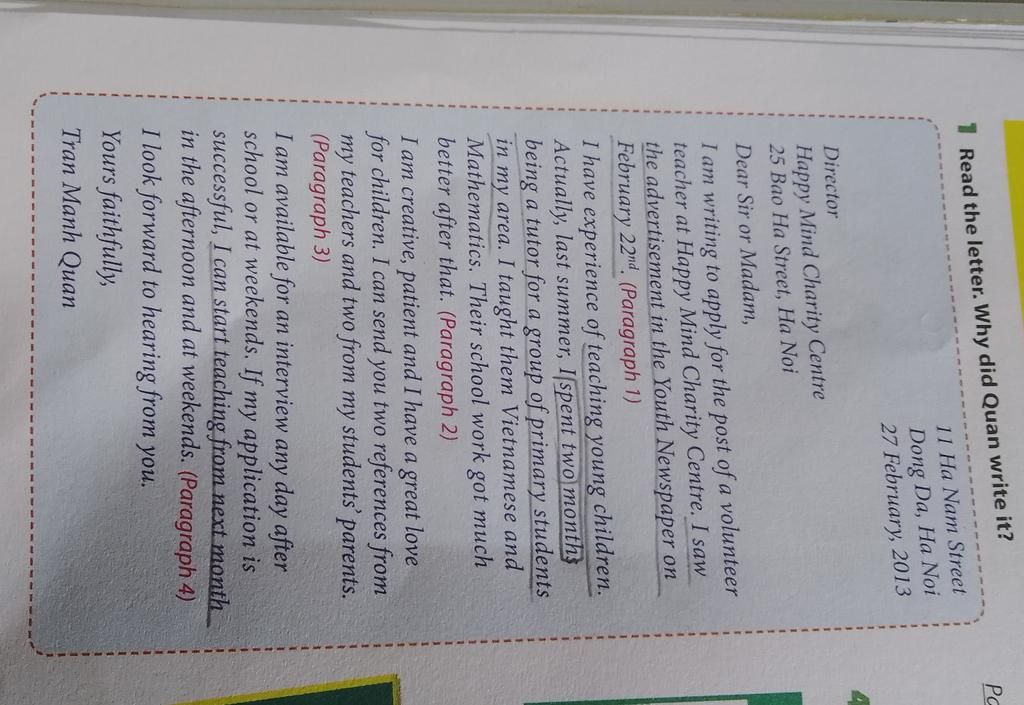 1 Read the letter. Why did Quan write it?
11 Ha Nam Street
Dong Da, Ha Noi
27 February, 2013
Director
Happy Mind Charity Centre
25 Bao Ha Street, Ha Noi
Dear Sir or Madam,
I am writing to apply for the post of a volunteer
teacher at Happy Mind Charity Centre. I saw
the advertisement in the Youth Newspaper on
February 22nd. (Paragraph 1)
I have experience of teaching young children.
Actually, last summer, I spent two months
being a tutor for a group of primary students
in my area. I taught them Vietnamese and
Mathematics. Their school work got much
better after that. (Paragraph 2)
I am creative, patient and I have a great love
for children. I can send you two references from
my teachers and two from my students' parents.
(Paragraph 3)
I am available for an interview any day after
school or at weekends. If my application is
successful, I can start teaching from next month
in the afternoon and at weekends. (Paragraph 4)
I look forward to hearing from you.
Yours faithfully,
Tran Manh Quan
4